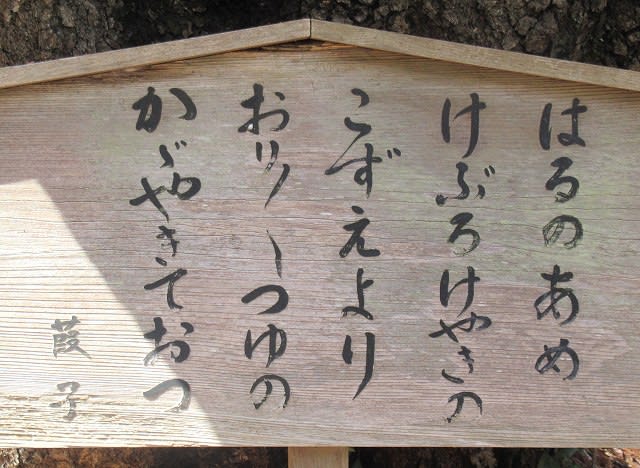 はるのあめ
けぶろけやきの
こずえより
おり〳〵つゆの
かゞやきておつ
葭子